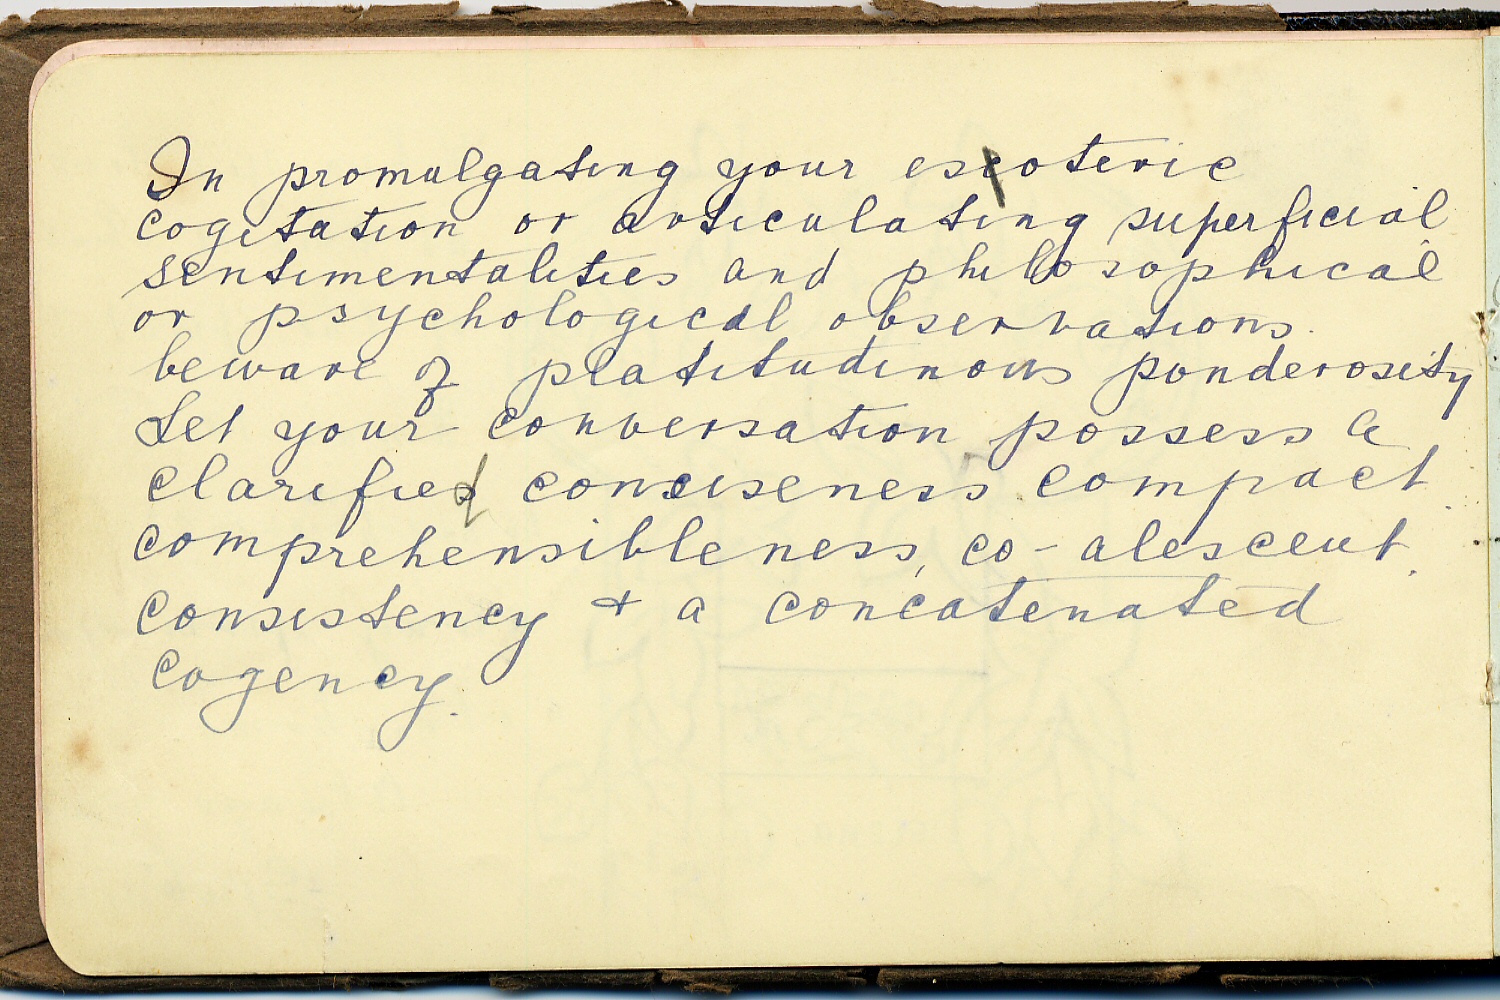 In promulgating your esoteric
cogitation or articulating superficial
sentimentalities and philosophical
or psychological observations.
beware of platitudinous ponderosity
Let your conversation possess a
clarified conciseness compact
comprehensibleness, co-alescent
consistency + a concatenated
cogency.